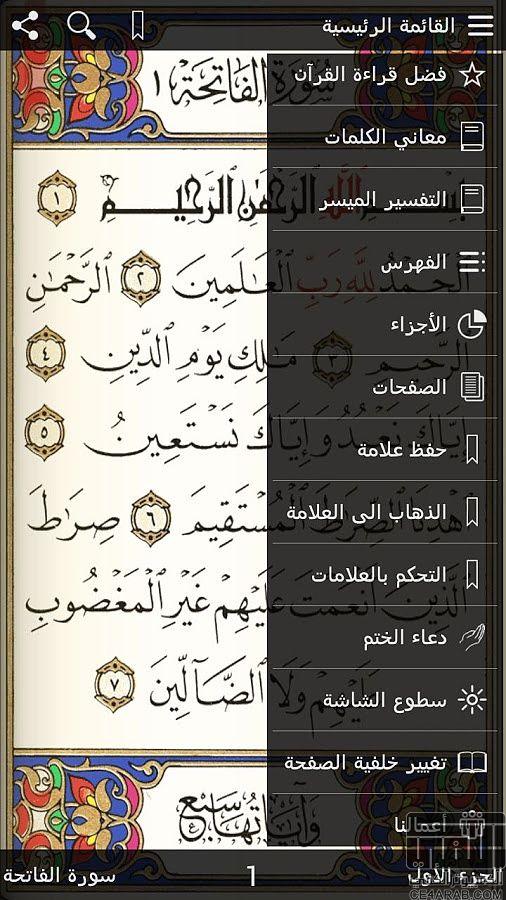 القائمة الرئيسية
سُورَةُ الفَاتِحَةِ ١
فضل قراءة القرآن
معاني الكلمات
التفسير الميسر
الفهرس
الأجزاء
الصفحات
حفظ علامة
الذهاب الى العلامة
التحكم بالعلامات
دعاء الختم
سطوع الشاشة
تغيير خلفية الصفحة
أعمالنا
بِسْمِ ٱللَّهِ ٱلرَّحْمَٰنِ ٱلرَّحِيمِ ١
ٱلْحَمْدُ لِلَّهِ رَبِّ ٱلْعَٰلَمِينَ ٢ ٱلرَّحْمَٰنِ
ٱلرَّحِيمِ ٣ مَٰلِكِ يَوْمِ ٱلدِّينِ ٤
إِيَّاكَ نَعْبُدُ وَإِيَّاكَ نَسْتَعِينُ ٥
ٱهْدِنَا ٱلصِّرَٰطَ ٱلْمُسْتَقِيمَ ٦ صِرَٰطَ
ٱلَّذِينَ أَنْعَمْتَ عَلَيْهِمْ غَيْرِ ٱلْمَغْضُوبِ
عَلَيْهِمْ وَلَا ٱلضَّآلِّينَ ٧
وَآيَاتُهَا سَبْعٌ
الجزء الأول
1
سورة الفاتحة
CE4ARAB.COM